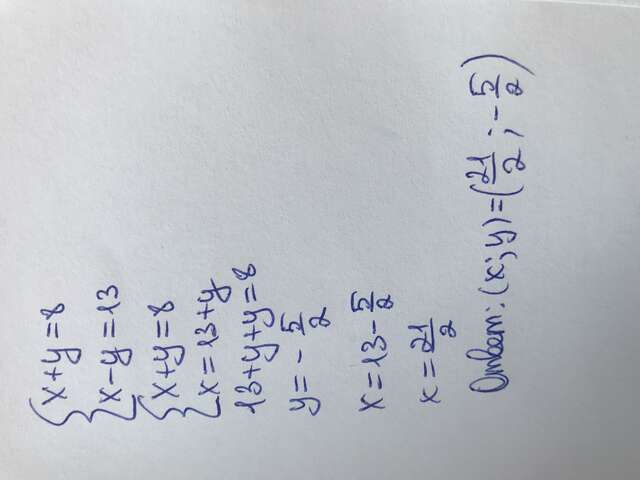 { x+y=8
{ x-y=13
{ x+y=8
{ x=13+y
13+y+y=8
y=-5/2
x=13-5/2
x=21/2
Ответ: (x;y)=(21/2;-5/2)